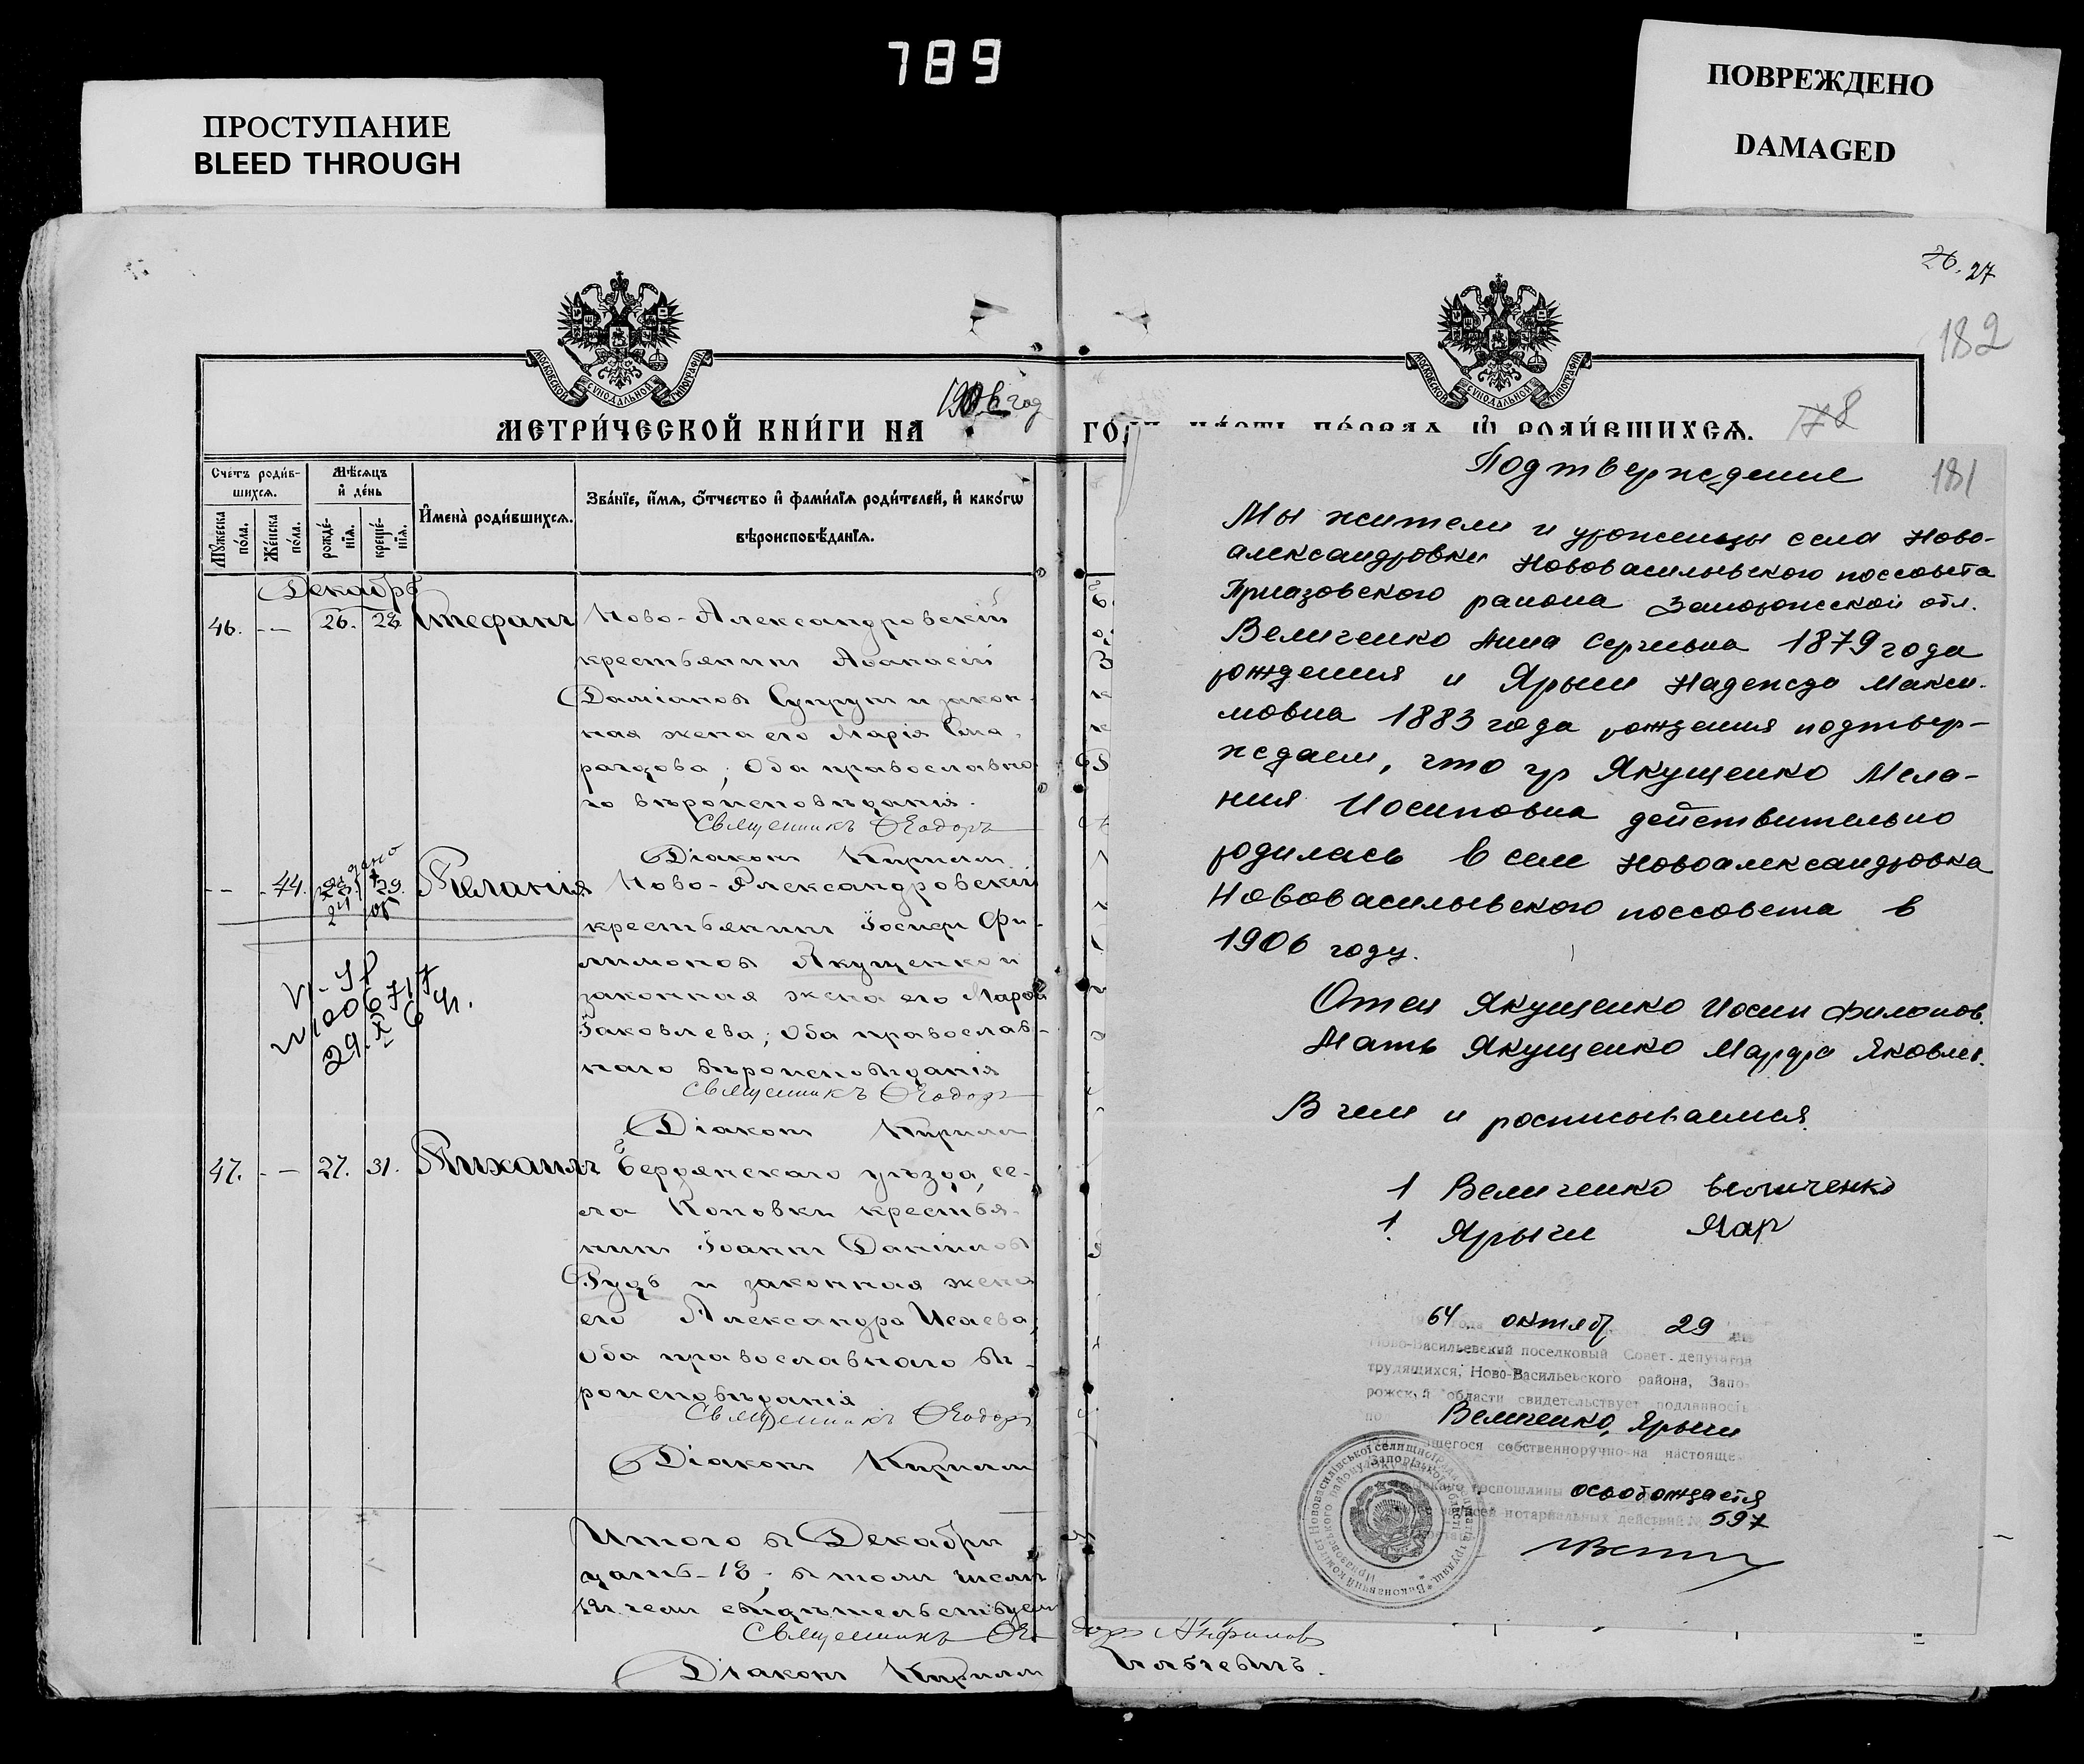 789
ПРОСТУПАНИЕ
BLEED THROUGH
ПОВРЕЖДЕНО
DAMAGED
26. 27
182
178
МОСКОВСКОЙ СѴНОДАЛЬНОЙ ТИПОГРАФІИ
МЕТРИ́ЧЕСКОЙ КНИ́ГИ НА 1906 год
Сче́тъ роди́в-
шихся.
Мѣ́сяцъ
и҆ де́нь
Мꙋ́жеска
по́ла.
Же́нска
по́ла.
рожде́-
нїѧ.
креще́-
нїѧ.
И҆мена̀ роди́вшихсѧ.
Зва́нїе, и҆́мѧ, ѻ҆́тчество и҆ фами́лїѧ роди́телей, и҆ како́гѡ
вѣроисповѣ́данїѧ.
Декабрь
46. -- 26. 28. Стефанъ Ново-Александровскій
крестьянинъ Аѳанасій
Даміановъ Супрун и закон-
ная жена его Марія Сма-
рагдова; Оба православно-
го вѣроисповѣданія.
Священникъ Ѳеодоръ
Діаконъ Кирилл
-- 44. 29. Меланія Ново-Александровскій
крестьянинъ Іосиф Фи-
лимоновъ Якущенко и
законная жена его Марѳа
Іаковлева; Оба православ-
наго вѣроисповѣданія
Священникъ Ѳеодоръ
Діаконъ Кирилл
VI-ЯР
N 1006717
29.X 64.
47. -- 27. 31. Михаилъ Бердянскаго уѣзда, се-
ла Поповки крестья-
нинъ Іоаннъ Даніиловъ
Гудь и законная жена
его Александра Исаева,
Оба православнаго вѣ-
роисповѣданія
Священникъ Ѳеодоръ
Діаконъ Кирилл
Итого въ Декабрѣ
Священникъ Ѳеодоръ Анфилов
Діаконъ Кирилл
МОСКОВСКОЙ СѴНОДАЛЬНОЙ ТИПОГРАФІИ
181
Подтверждение
Мы жители и уроженцы села Ново-
александровки Нововасильевского поссовета
Приазовского района Запорожской обл.
Величенко Анна Сергеевна 1879 года
рождения и Ярыш Надежда Макси-
мовна 1883 года рождения подтвер-
ждаем, что гр Якущенко Мела-
ния Иосиповна действительно
родилась в селе Новоалександровка
Нововасильевского поссовета в
1906 году.
Отец Якущенко Иосип Филонов.
Мать Якущенко Марфа Яковлев.
В чем и росписываемся.
1 Величенко Величенко
1. Ярыш Яар
64 октяб 29
Ново-Васильевский поселковый Совет депутатов
трудящихся, Ново-Васильевского района, Запо-
рожской области свидетельствует подлинность
Величенко, Ярыш
собственноручно на настояще-
госпошлины освобождается
нотариальных действий № 597